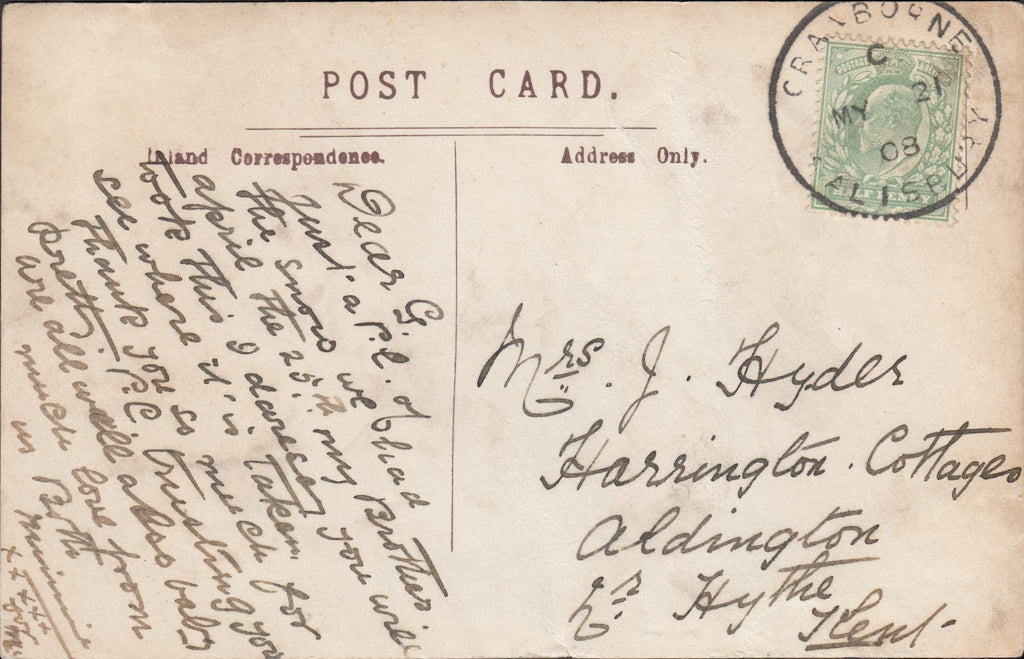 POST CARD.
Inland Correspondence.
Address Only.
CRANBORNE
C
MY 21
08
SALISBURY
POSTAGE
Dear G.
Just a P.C. of
the snow we had
april the 25th my Brother
took this I daresay you will
see where it is taken for
thank you so much
Pretty PC trusting you
are all well also baby
much love from
us Both
Minnie
x x x x x
for
Mrs. J. Hyder
Harrington Cottages
Aldington
Nr Hythe
Kent